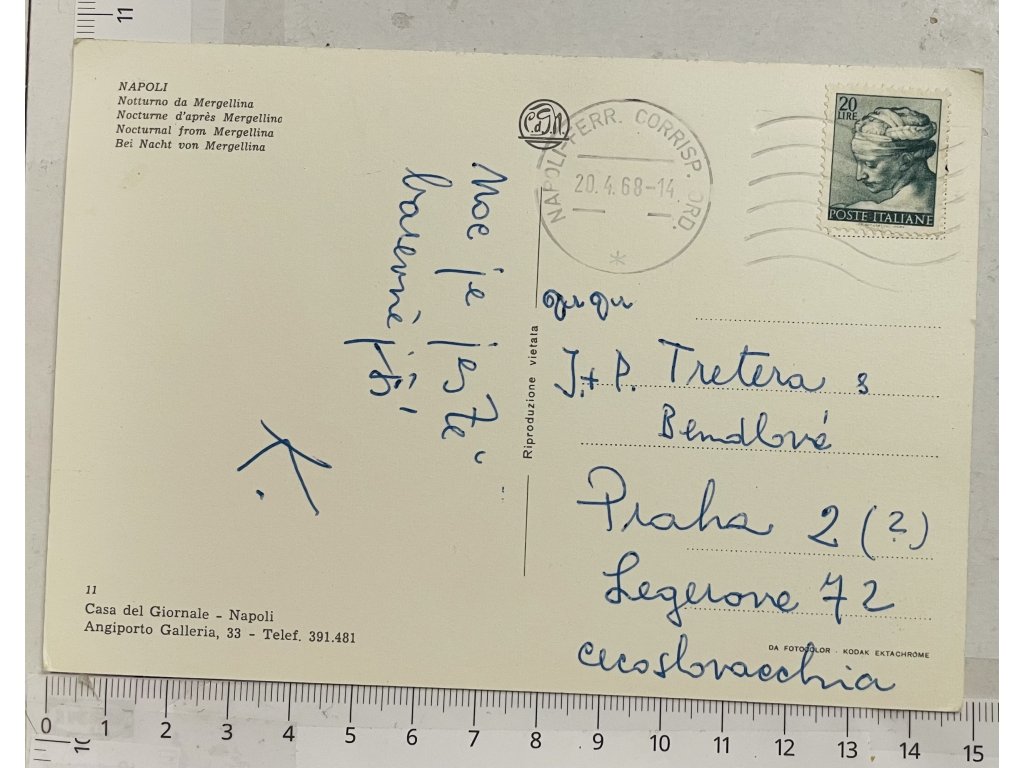 NAPOLI
Notturno da Mergellina
Nocturne d'après Mergellina
Nocturnal from Mergellina
Bei Nacht von Mergellina
C.d.G.N.
NAPOLI-FERR. CORRISP. ORD.
20.4.68-14
20
LIRE
POSTE ITALIANE
Moc je
barevné
K.
Riproduzione vietata
J.+P. Tretera s
Bendlové
Praha 2 (?)
Legerova 72
cecoslovacchia
11
Casa del Giornale - Napoli
Angiporto Galleria, 33 - Telef. 391.481
DA FOTOCOLOR - KODAK EKTACHROME
11
10
0 1 2 3 4 5 6 7 8 9 10 11 12 13 14 15